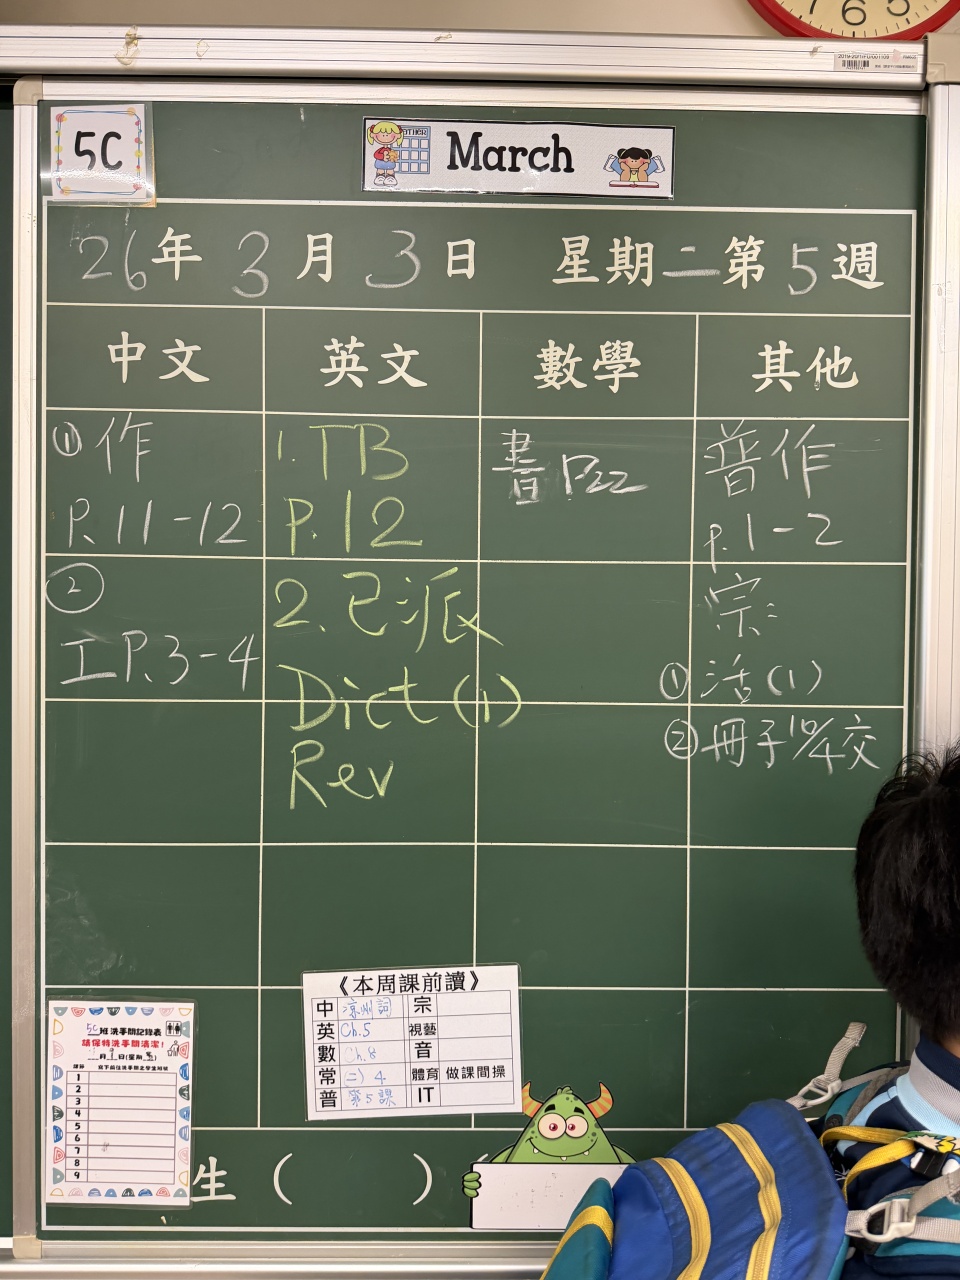 5C
March
26年3月3日 星期二第5週
中文 英文 數學 其他
①作
P.11-12
②
工P.3-4
1.TB
P.12
2.已派
Dict(1)
Rev
書P22
普作
p.1-2
宗:
①活(1)
②冊子10/4交
《本周課前讀》
中 涼州詞 宗
英 Ch.5 視藝
數 Ch.8 音
常 二)4 體育 做課間操
普 第5課 IT
5C班洗手間記錄表
請保持洗手間清潔!
月 日(星期 )
1
2
3
4
5
6
7
8
9
生( )
6